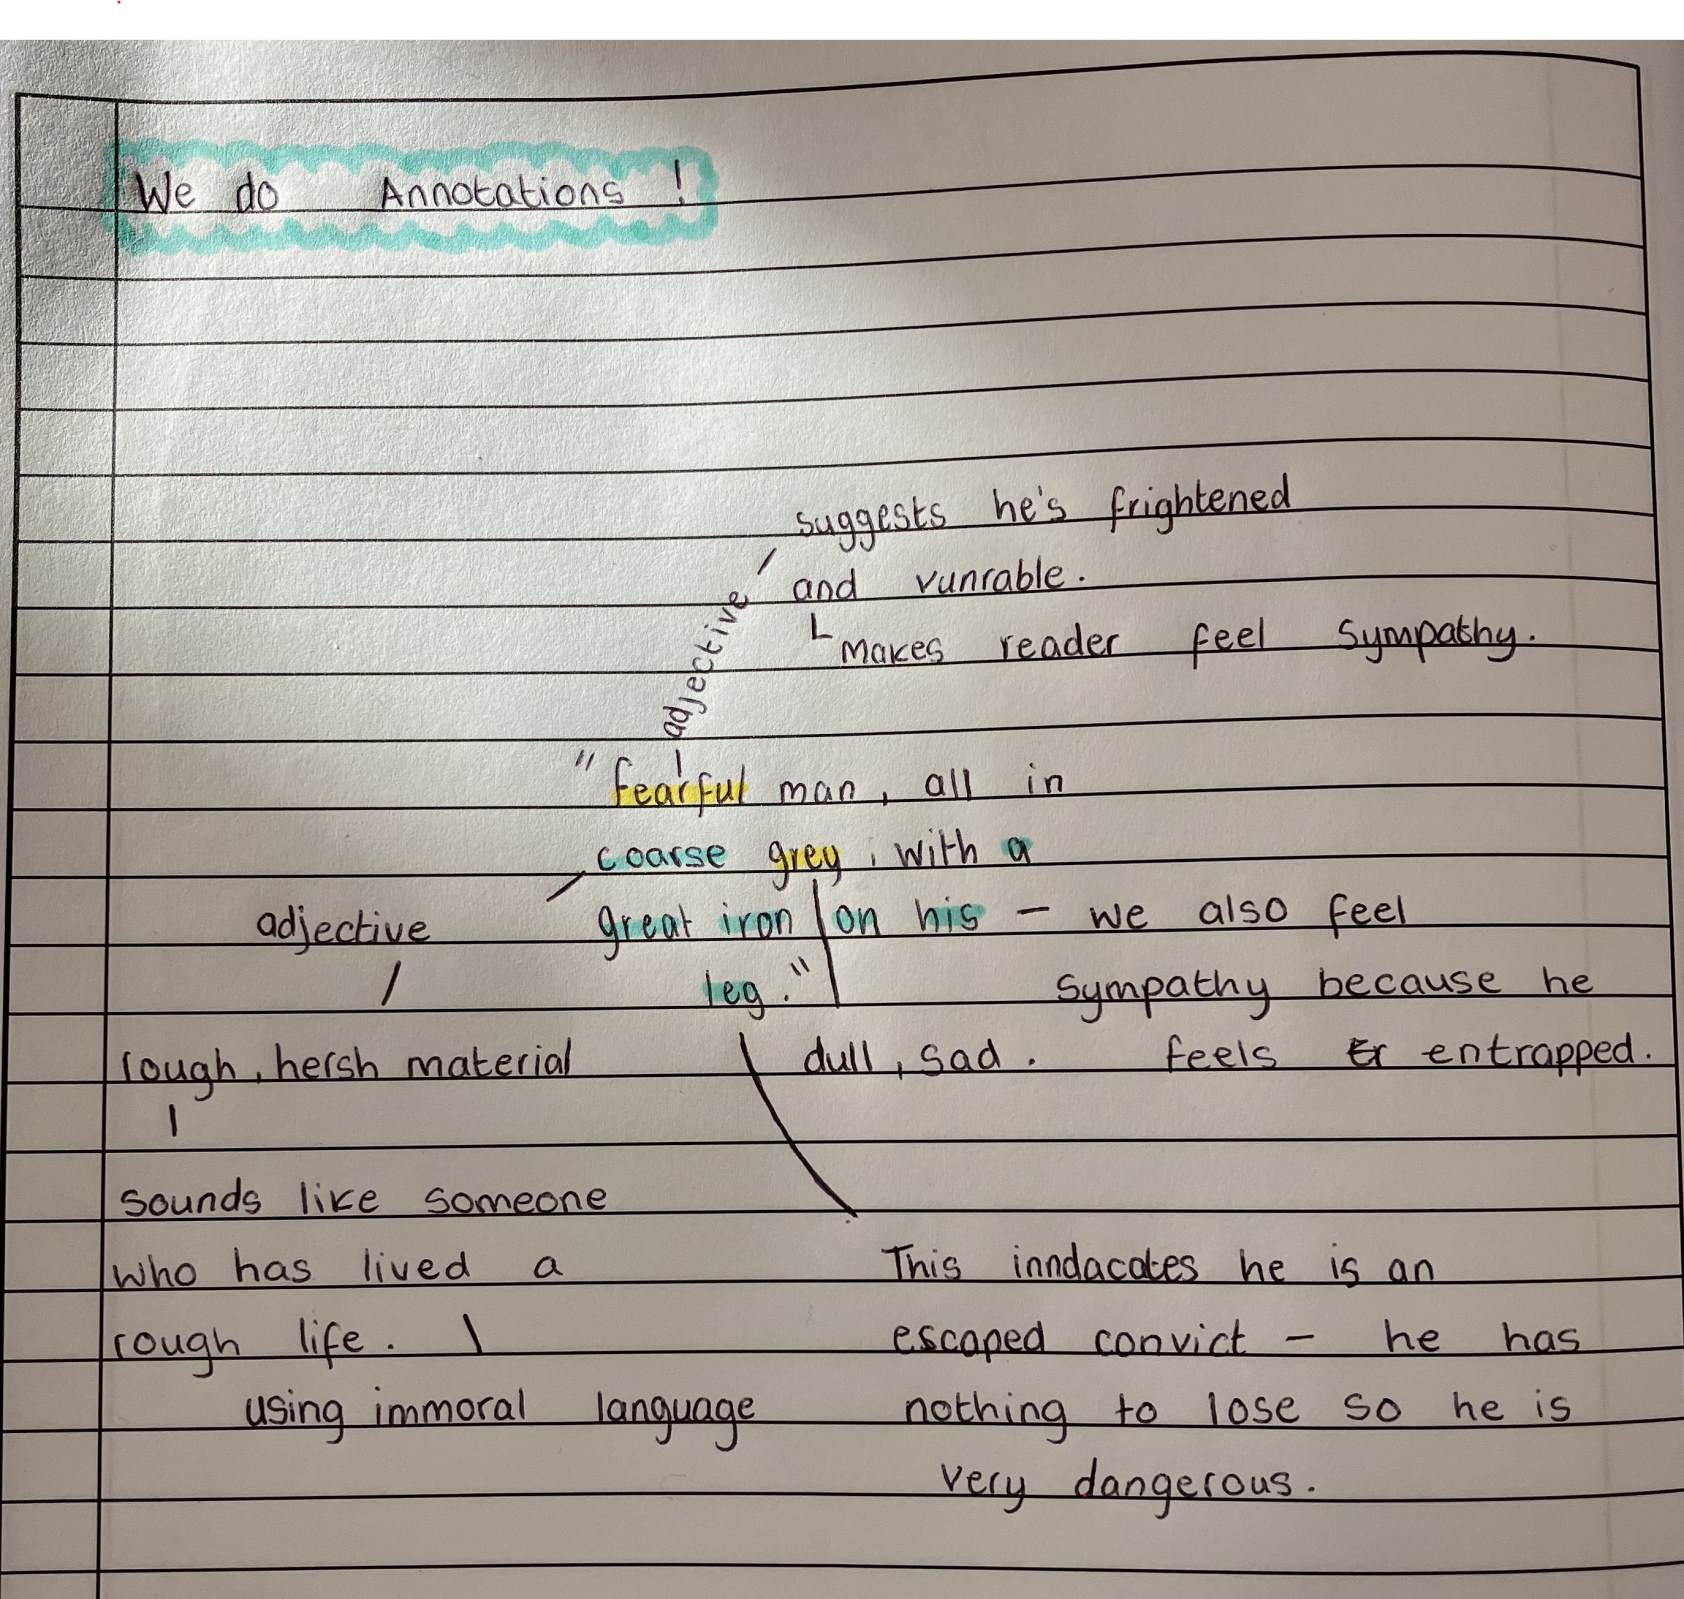 We do Annotations!
suggests he's frightened
and vunrable.
makes reader feel sympathy.
adjective
"fearful man, all in
coarse grey, with a
adjective
great iron on his - we also feel
leg."
sympathy because he
rough, hersh material
dull, sad.
feels Er entrapped.
sounds like someone
who has lived a
rough life.
using immoral language
This inndacates he is an
escaped convict - he has
nothing to lose so he is
very dangerous.